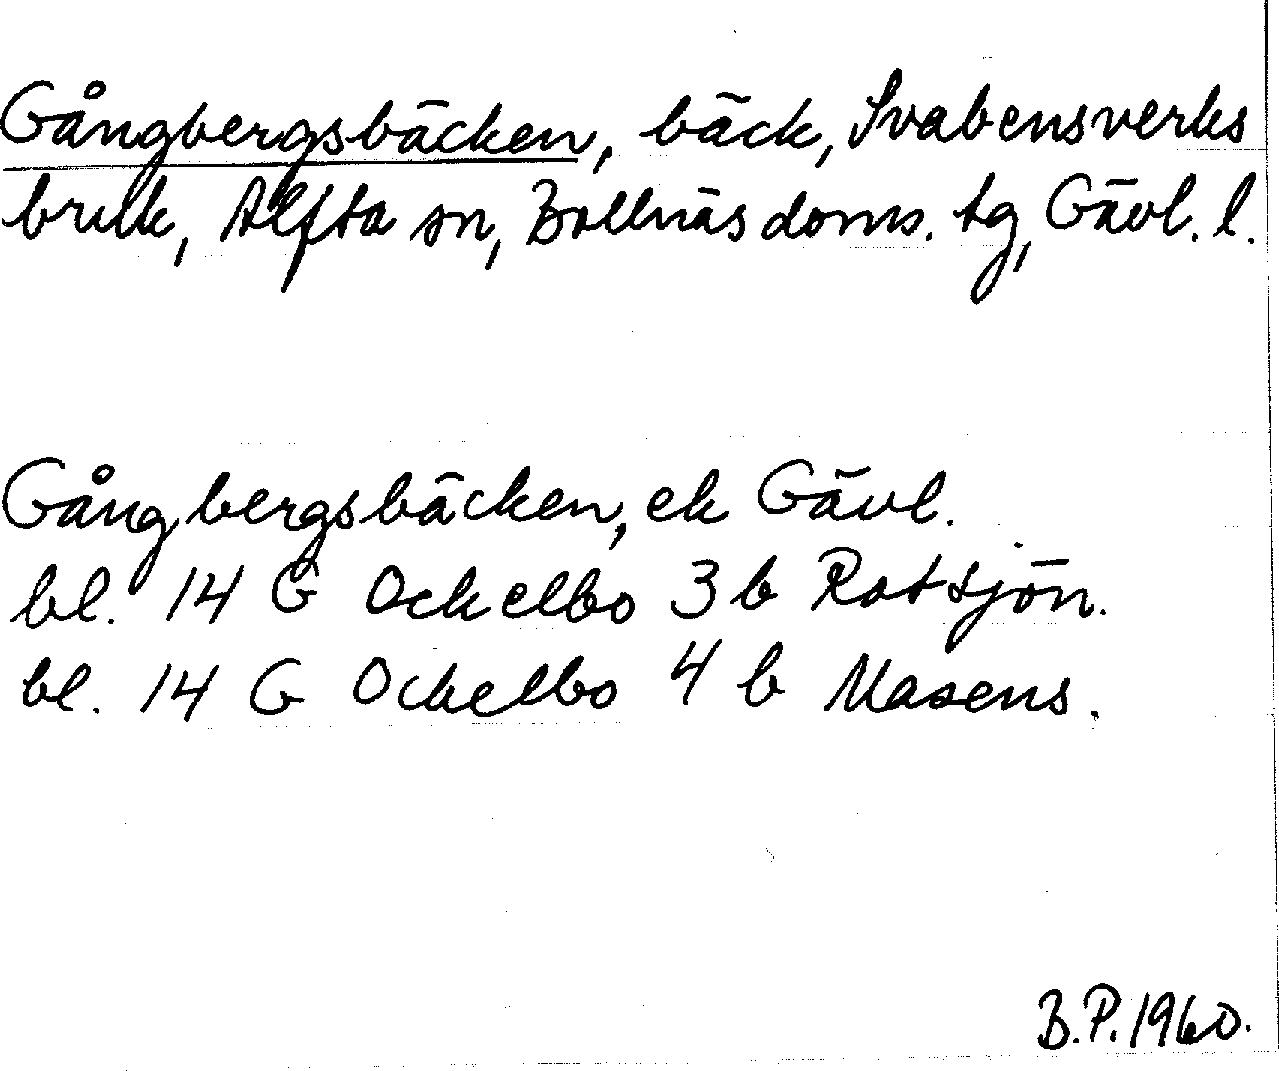 Gångbergsbäcken, bäck, Svabensverks
bruk, Alfta sn, Bollnäs doms. tg, Gävl. l.
Gångbergsbäcken, ek Gävl.
bl. 14 G Ockelbo 3 b Rotsjön.
bl. 14 G Ockelbo 4 b Masens.
B.P. 1960.